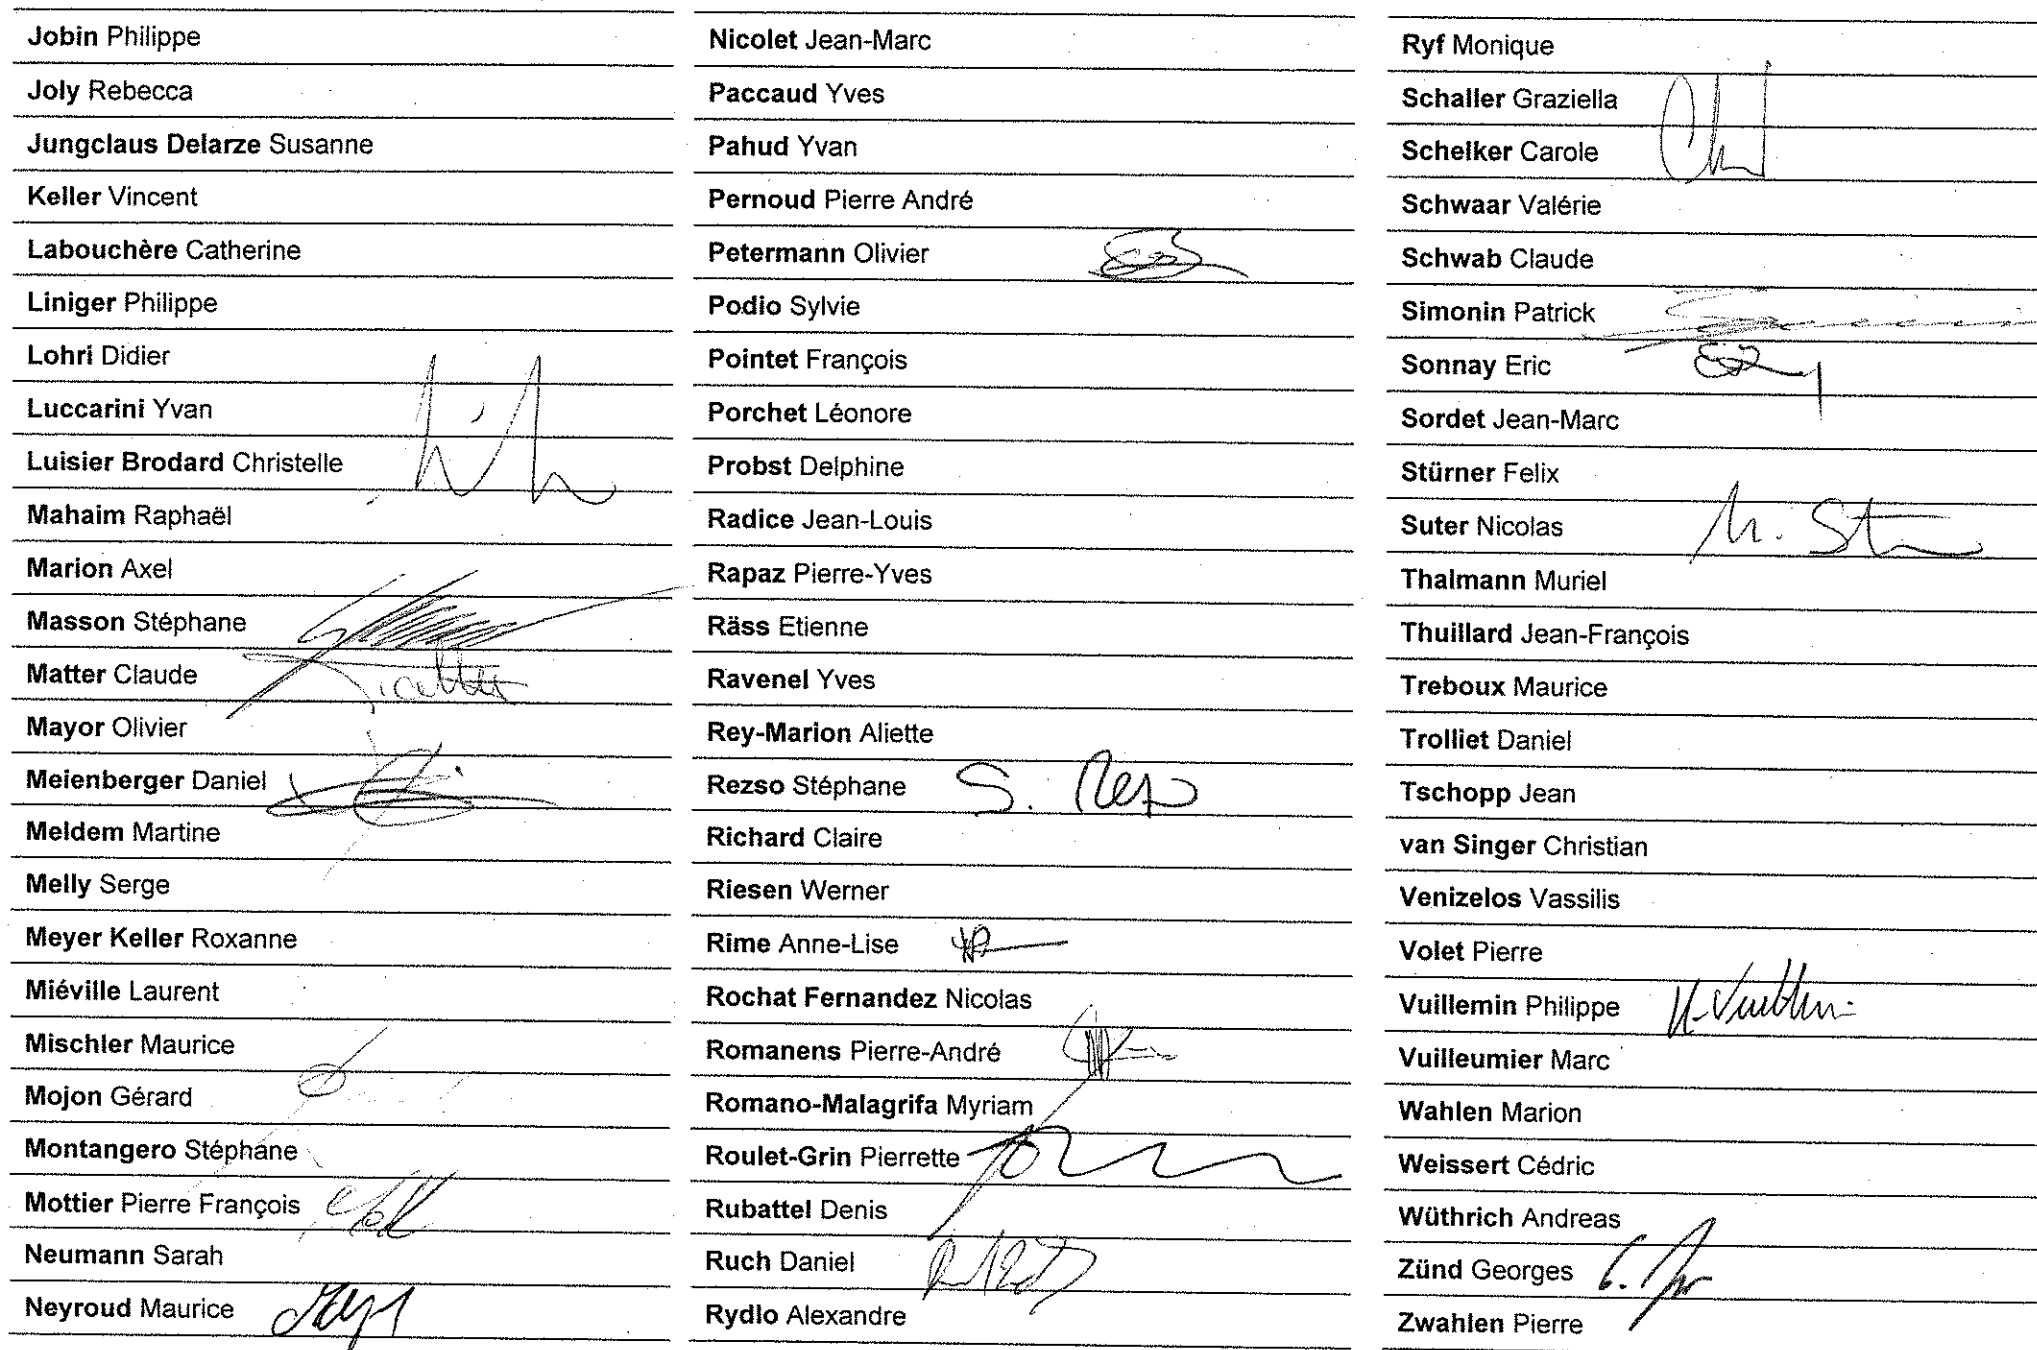 Jobin Philippe
Joly Rebecca
Jungclaus Delarze Susanne
Keller Vincent
Labouchère Catherine
Liniger Philippe
Lohri Didier
Luccarini Yvan
Luisier Brodard Christelle
Mahaim Raphaël
Marion Axel
Masson Stéphane
Matter Claude
Mayor Olivier
Meienberger Daniel
Meldem Martine
Melly Serge
Meyer Keller Roxanne
Miéville Laurent
Mischler Maurice
Mojon Gérard
Montangero Stéphane
Mottier Pierre François
Neumann Sarah
Neyroud Maurice
Nicolet Jean-Marc
Paccaud Yves
Pahud Yvan
Pernoud Pierre André
Petermann Olivier
Podio Sylvie
Pointet François
Porchet Léonore
Probst Delphine
Radice Jean-Louis
Rapaz Pierre-Yves
Räss Etienne
Ravenel Yves
Rey-Marion Aliette
Rezso Stéphane S. Rezso
Richard Claire
Riesen Werner
Rime Anne-Lise
Rochat Fernandez Nicolas
Romanens Pierre-André
Romano-Malagrifa Myriam
Roulet-Grin Pierrette
Rubattel Denis
Ruch Daniel
Rydlo Alexandre
Ryf Monique
Schaller Graziella
Schelker Carole
Schwaar Valérie
Schwab Claude
Simonin Patrick
Sonnay Eric
Sordet Jean-Marc
Stürner Felix
Suter Nicolas
Thalmann Muriel
Thuillard Jean-François
Treboux Maurice
Trolliet Daniel
Tschopp Jean
van Singer Christian
Venizelos Vassilis
Volet Pierre
Vuillemin Philippe
Vuilleumier Marc
Wahlen Marion
Weissert Cédric
Wüthrich Andreas
Zünd Georges
Zwahlen Pierre